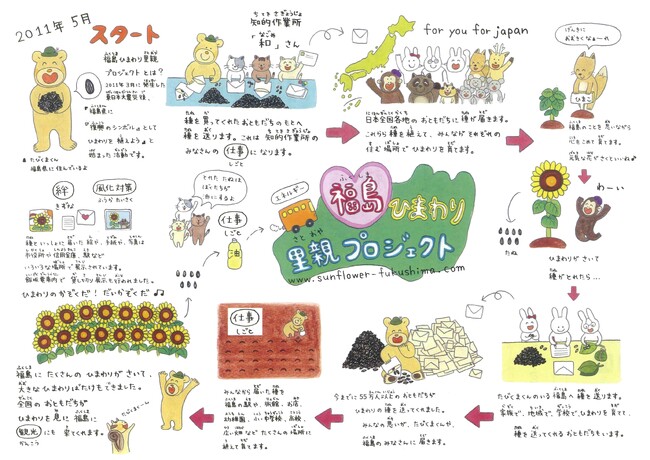 2011年 5月
スタート
福島ひまわり里親
プロジェクトとは?
2011年3月に発生した
東日本大震災後、
福島県に
『復興のシンボル』として
ひまわりを 植えよう♪と
始まった活動です。
たびくまくん
福島県に住んでいるよ
知的作業所
ちてきさぎょうじょ
「和」さん
なごみ
種を買ってくれたおともだちのもとへ
種を送ります。これは 知的作業所の
みなさんの 仕事 になります。
しごと
for you for japan
日本全国各地の おともだちに 種が届きます。
これらの種を植えて、みんなが それぞれの
住む場所で ひまわりを 育てます。
げんきに
おおきくなぁーれ
ひまわり
福島のことを思いながら
心をこめて育てます。
元気な花がさくといいね♪
わーい
たね
ひまわりがさいて
種がとれたら…
絆
きずな
風化対策
ふうかたいさく
種といっしょに届いた絵や、手紙や、写真は
市役所や信用金庫、駅など
いろいろな場所で展示されています。
とれたたねは
ぼくたちが
油にするよ
仕事
しごと
油
エネルギー
福島ひまわり
ふくしま
さとおや
里親プロジェクト
www.sunflower-fukushima.com
ひまわりのかぞくだ!だいかぞくだ♪
福島に たくさんの ひまわりが さいて、
大きな ひまわりばたけも できました。
全国の おともだちが
ひまわりを 見に 福島に
観光 にも 来てくれます。
かんこう
たびくまくーん
仕事
しごと
みんなから届いた種を
福島の駅や、旅館、お店、
幼稚園、小中学校、高校、
広い畑など たくさんの場所に
植えて育てます。
今までに 55万人以上の おともだちが
ひまわりの種を送ってくれました。
みんなの思いが、たびくまくんや、
福島のみなさんに 届きます。
たびくまくんのいる 福島へ 種を 送ります。
家族で、地域で、学校で、ひまわりを 育て、
種を 送ってくれる おともだちもいます。